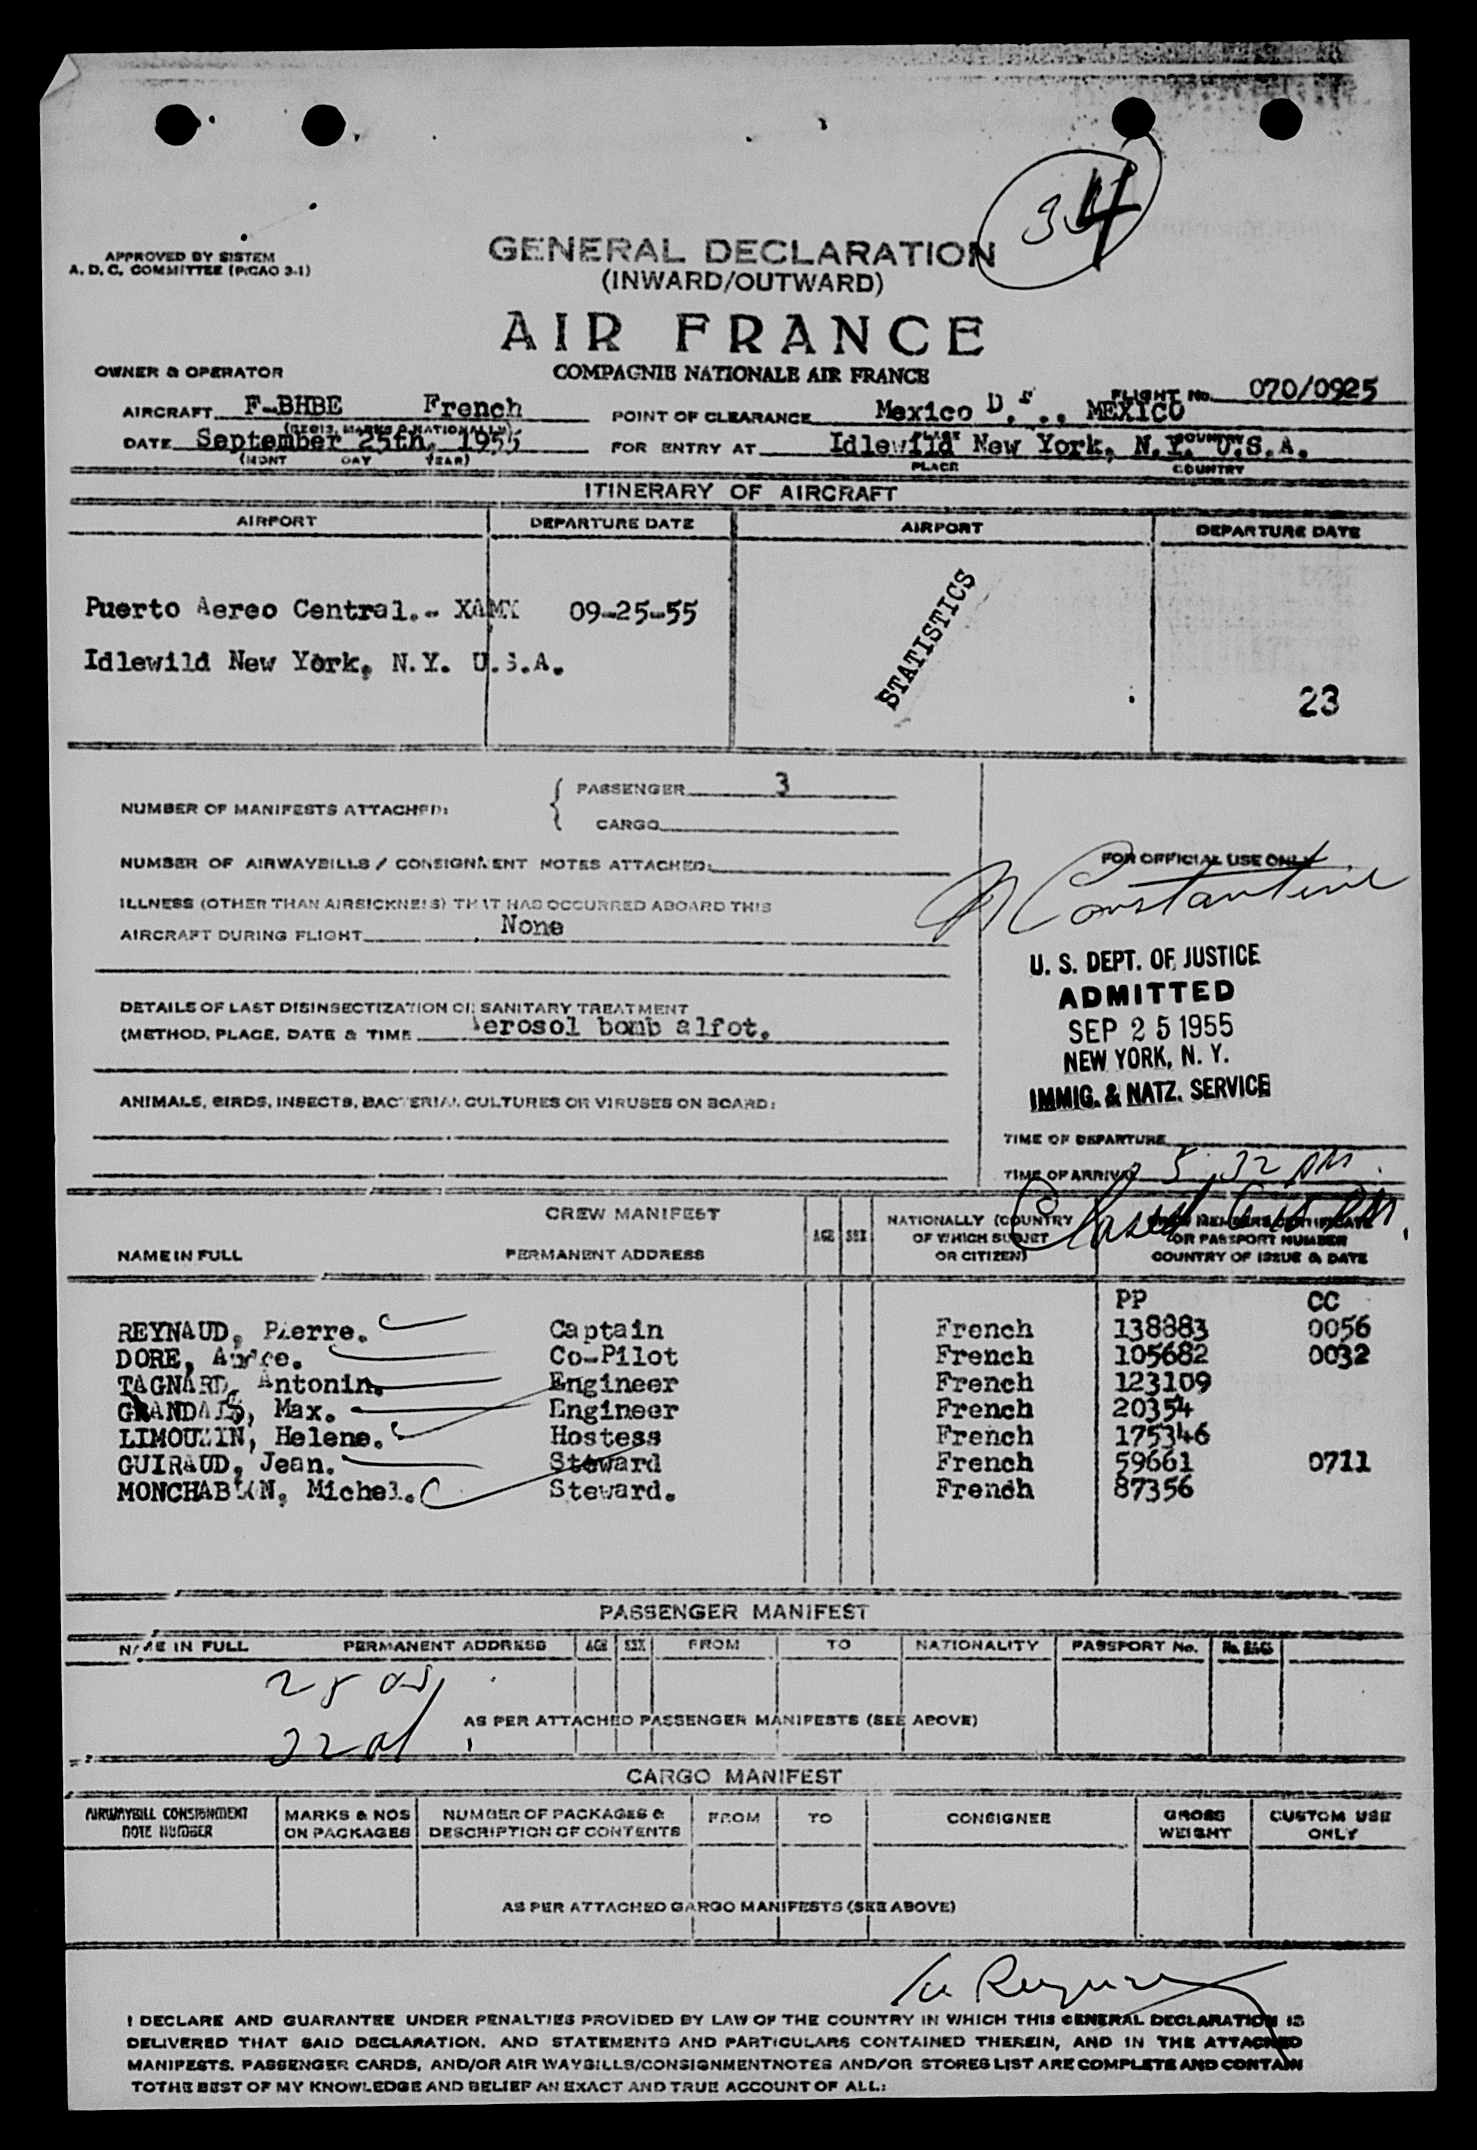 34
APPROVED BY SISTEM
A. D. C. COMMITTEE (PICAO 3-1)
GENERAL DECLARATION
(INWARD/OUTWARD)
AIR FRANCE
COMPAGNIE NATIONALE AIR FRANCE
OWNER & OPERATOR
FLIGHT No. 070/0925
AIRCRAFT F-BHBE French
(REGIS. MARKS & NATIONALLY)
POINT OF CLEARANCE Mexico D. F., MEXICO
PLACE COUNTRY
DATE September 25th, 1955
(MONT DAY YEAR)
FOR ENTRY AT Idlewild New York, N.Y. U.S.A.
PLACE COUNTRY
ITINERARY OF AIRCRAFT
AIRPORT DEPARTURE DATE AIRPORT DEPARTURE DATE
Puerto Aereo Central.- XAMX 09-25-55
Idlewild New York, N.Y. U.S.A.
STATISTICS
23
NUMBER OF MANIFESTS ATTACHED: { PASSENGER 3
CARGO
NUMBER OF AIRWAYBILLS / CONSIGNMENT NOTES ATTACHED:
ILLNESS (OTHER THAN AIRSICKNESS) THAT HAS OCCURRED ABOARD THIS
AIRCRAFT DURING FLIGHT None
DETAILS OF LAST DISINSECTIZATION OR SANITARY TREATMENT
(METHOD, PLACE, DATE & TIME Aerosol bomb alfot.
ANIMALS, BIRDS, INSECTS, BACTERIAL CULTURES OR VIRUSES ON BOARD:
FOR OFFICIAL USE ONLY
Constantine
U. S. DEPT. OF JUSTICE
ADMITTED
SEP 25 1955
NEW YORK, N. Y.
IMMIG. & NATZ. SERVICE
TIME OF DEPARTURE
TIME OF ARRIVAL 5:32 PM.
CREW MANIFEST
NAME IN FULL PERMANENT ADDRESS AGE SEX NATIONALLY (COUNTRY OF WHICH SUBJET OR CITIZEN) CREW MEMBERS CERTIFICATE OR PASSPORT NUMBER COUNTRY OF ISSUE & DATE
PP CC
REYNAUD, Pierre. Captain French 138883 0056
DORE, Andre. Co-Pilot French 105682 0032
TAGNARD, Antonin. Engineer French 123109
GRANDAIS, Max. Engineer French 20354
LIMOUZIN, Helene. Hostess French 175346
GUIRAUD, Jean. Steward French 59661 0711
MONCHABLON, Michel. Steward. French 87356
PASSENGER MANIFEST
NAME IN FULL PERMANENT ADDRESS AGE SEX FROM TO NATIONALITY PASSPORT No. No. BAGS
AS PER ATTACHED PASSENGER MANIFESTS (SEE ABOVE)
CARGO MANIFEST
AIRWAYBILL CONSIGNMENT NOTE NUMBER MARKS & NOS ON PACKAGES NUMBER OF PACKAGES & DESCRIPTION OF CONTENTS FROM TO CONSIGNEE GROSS WEIGHT CUSTOM USE ONLY
AS PER ATTACHED CARGO MANIFESTS (SEE ABOVE)
I DECLARE AND GUARANTEE UNDER PENALTIES PROVIDED BY LAW OF THE COUNTRY IN WHICH THIS GENERAL DECLARATION IS
DELIVERED THAT SAID DECLARATION, AND STATEMENTS AND PARTICULARS CONTAINED THEREIN, AND IN THE ATTACHED
MANIFESTS, PASSENGER CARDS, AND/OR AIR WAYBILLS/CONSIGNMENTNOTES AND/OR STORES LIST ARE COMPLETE AND CONTAIN
TOTHE BEST OF MY KNOWLEDGE AND BELIEF AN EXACT AND TRUE ACCOUNT OF ALL: